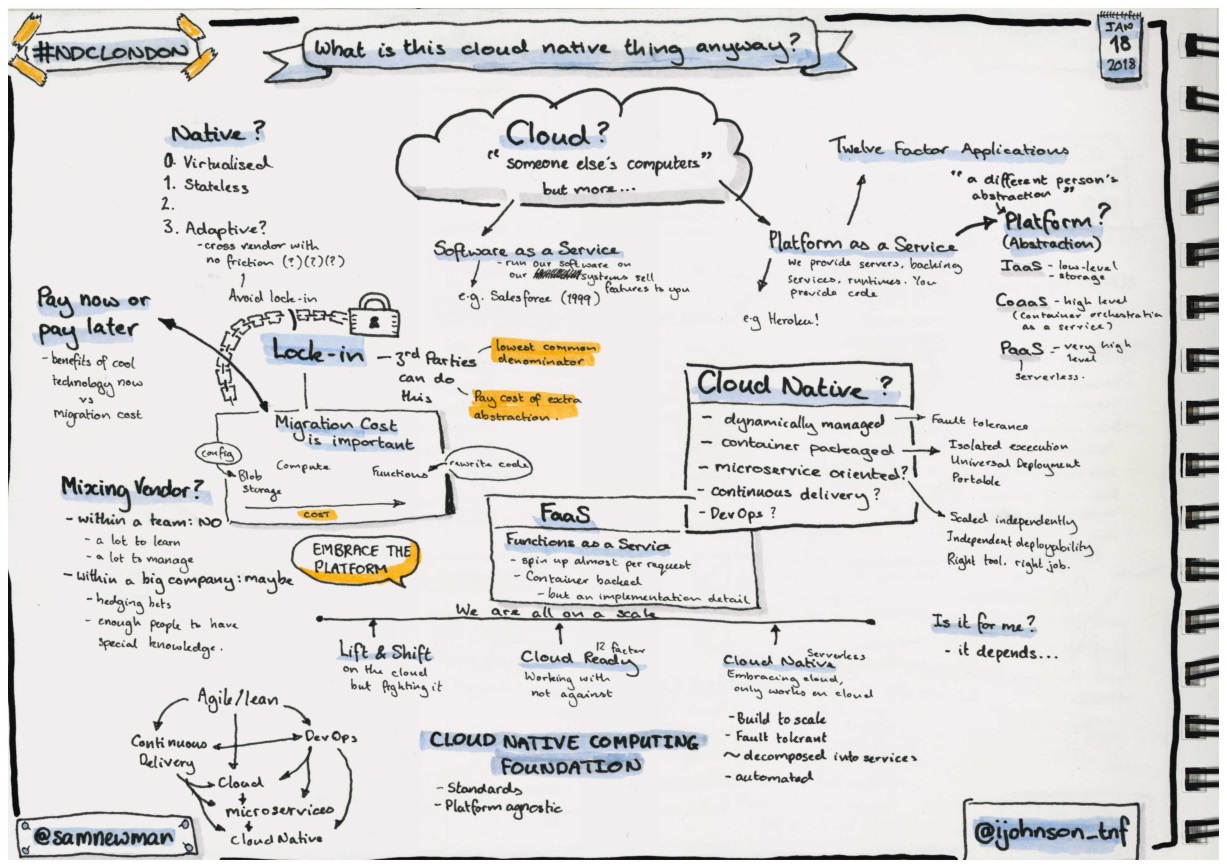 #NDCLONDON
What is this cloud native thing anyway?
JAN
18
2018
Native?
0. Virtualised
1. Stateless
2.
3. Adaptive?
- cross vendor with
no friction (?)(?)(?)
Avoid lock-in
Cloud?
"someone else's computers"
but more...
Software as a Service
- run our software on
our systems sell
features to you
e.g. Salesforce (1999)
Twelve Factor Applications
Platform as a Service
We provide servers, backing
Services, runtimes. You
provide code
e.g Heroku!
"a different person's
abstraction"
Platform?
(Abstraction)
IaaS - low-level
- storage
CoaaS - high level
(Container orchestration
as a service)
PaaS - very high
level
serverless.
Pay now or
pay later
- benefits of cool
technology now
vs
migration cost
Lock-in
- 3rd Parties
can do
this
lowest common
denominator
Pay cost of extra
abstraction.
Migration Cost
is important
config
Blob
Storage
Compute
Functions
rewrite code
COST
Cloud Native?
- dynamically managed
- container packaged
- microservice oriented?
- continuous delivery?
- DevOps?
Fault tolerance
Isolated execution
Universal Deployment
Portable
Scaled independently
Independent deployability
Right tool, right job.
Mixing Vendor?
- within a team: NO
- a lot to learn
- a lot to manage
- within a big company: maybe
- hedging bets
- enough people to have
special knowledge.
EMBRACE THE
PLATFORM
FaaS
Functions as a Service
- spin up almost per request
- Container backed
- but an implementation detail
We are all on a scale
Lift & Shift
on the cloud
but fighting it
12 factor
Cloud Ready
Working with
not against
Serverless
Cloud Native
Embracing cloud,
only works on cloud
- Build to scale
- Fault tolerant
~ decomposed into services
- automated
Is it for me?
- it depends...
Agile/lean
Continuous
Delivery
DevOps
Cloud
microservices
Cloud Native
CLOUD NATIVE COMPUTING
FOUNDATION
- Standards
- Platform agnostic
@samnewman
@ijohnson_tnf